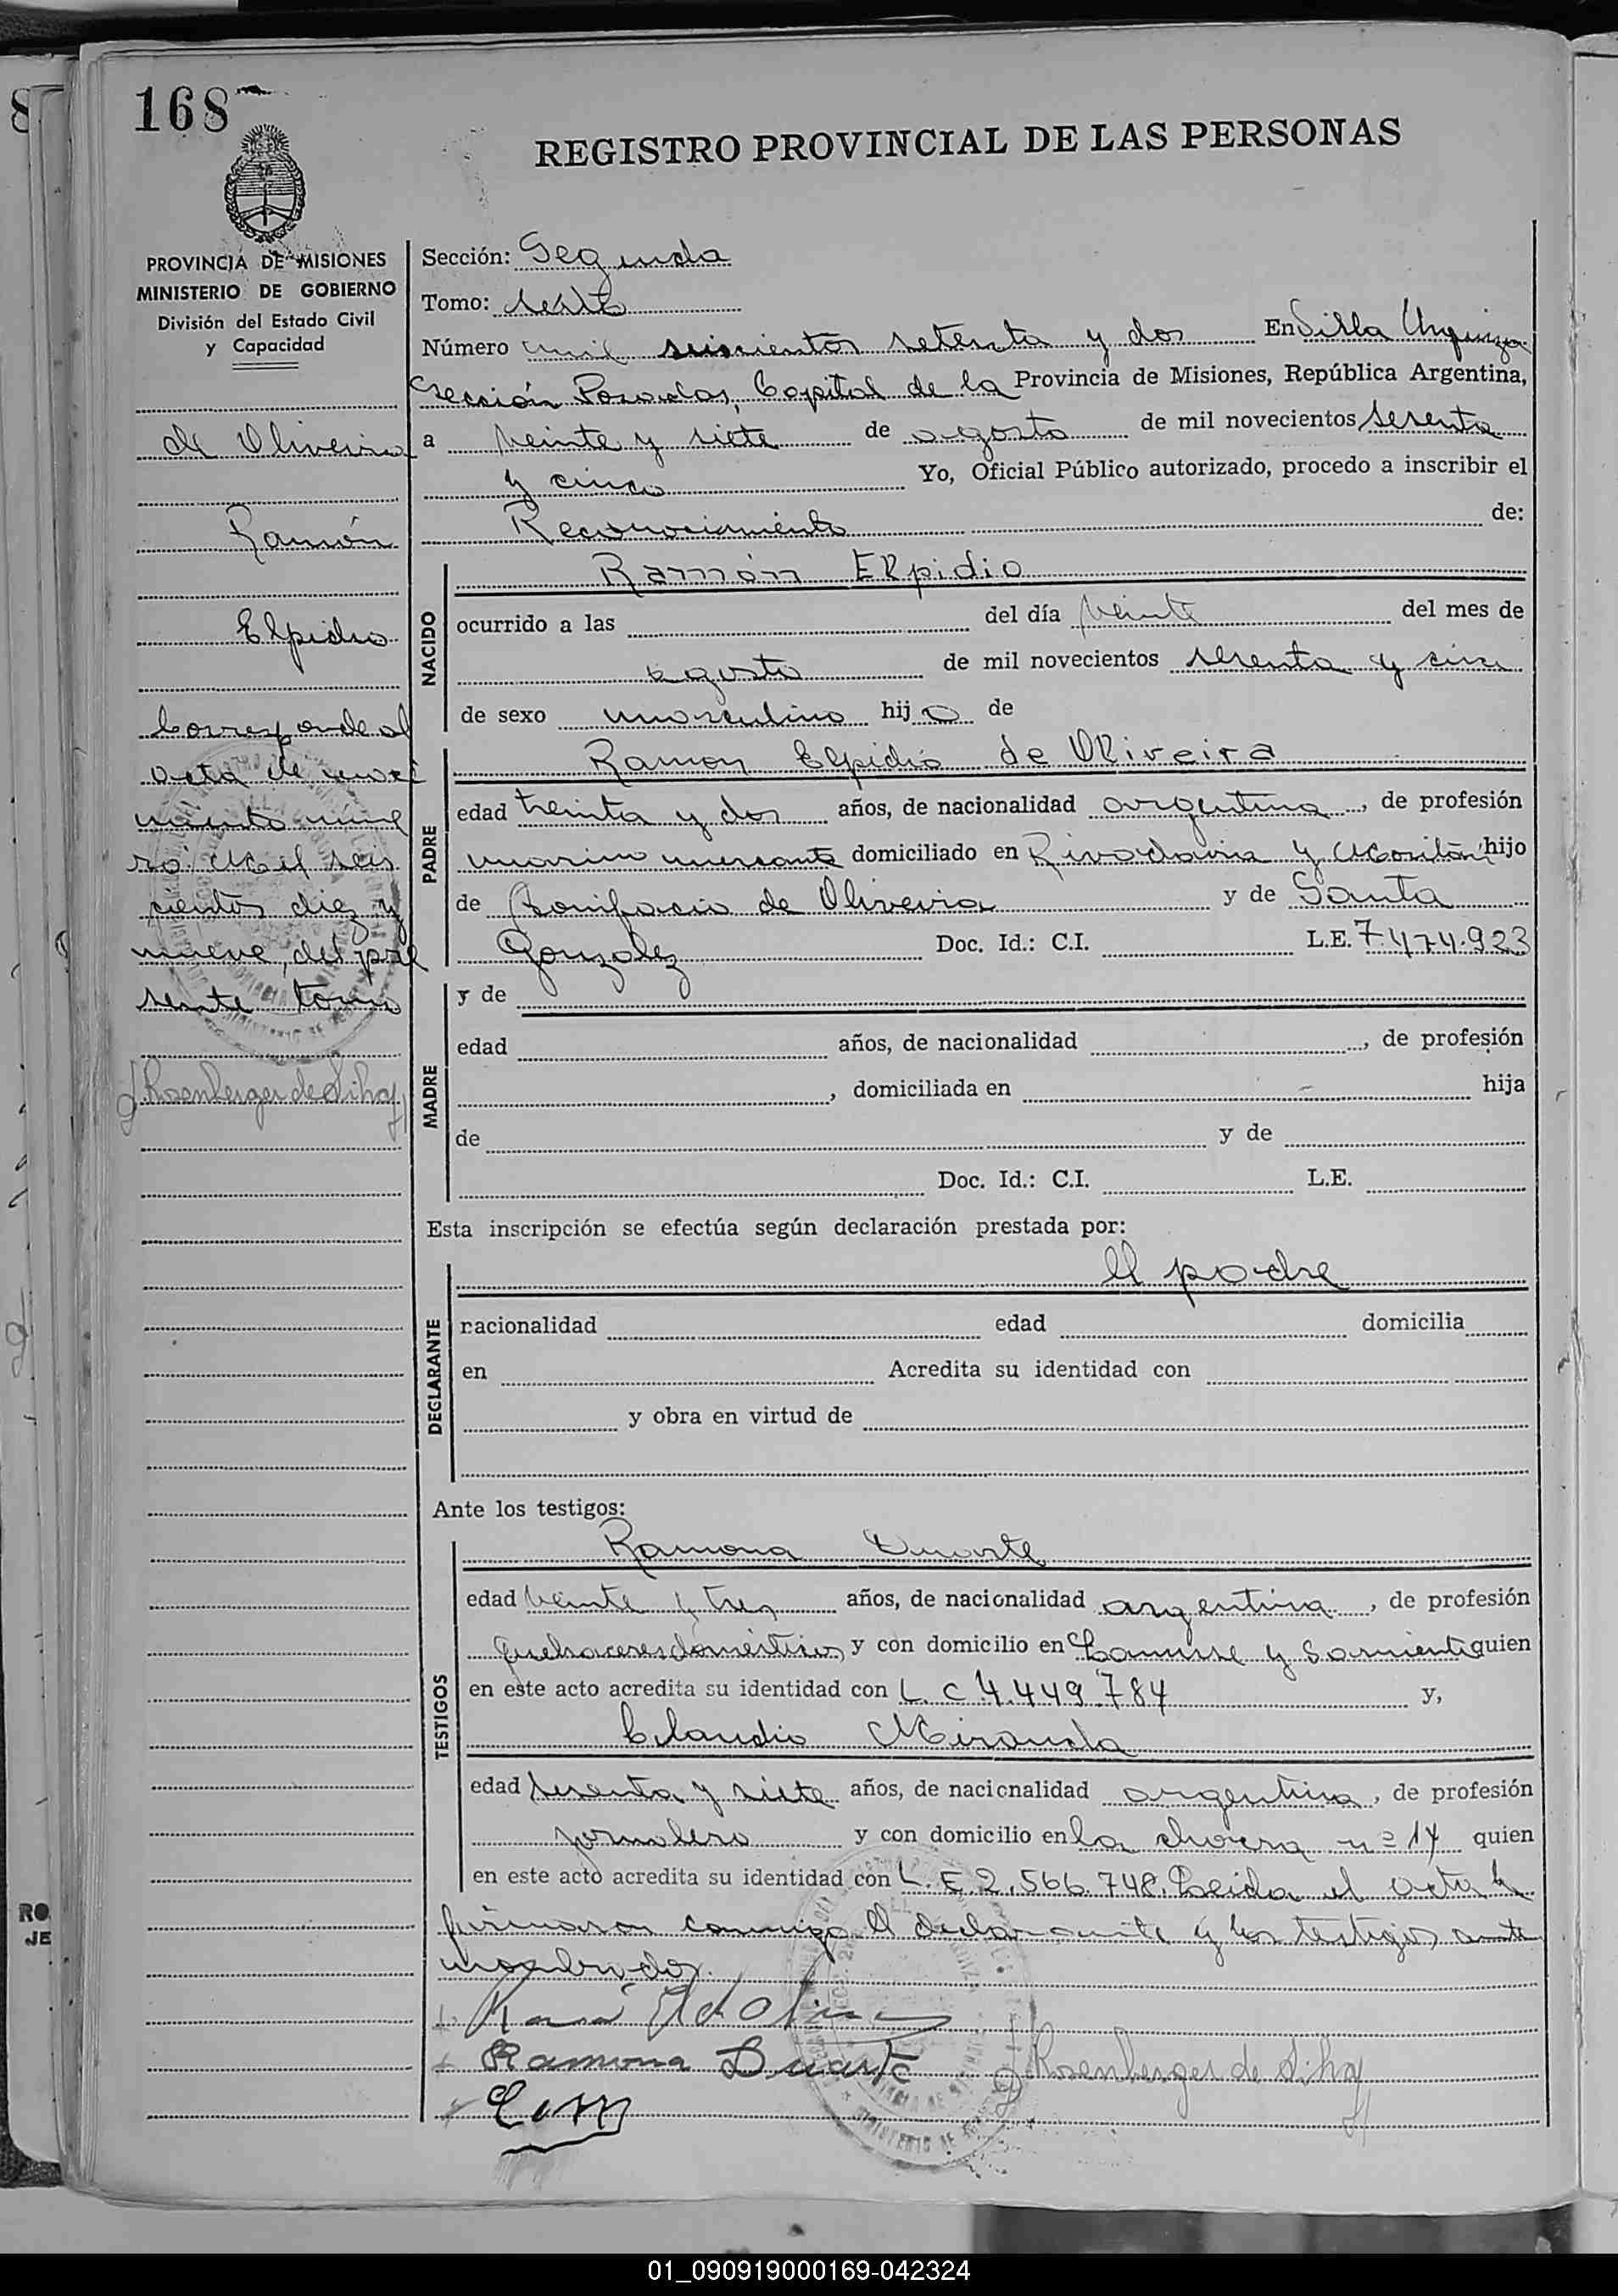 168
REGISTRO PROVINCIAL DE LAS PERSONAS
PROVINCIA DE MISIONES
MINISTERIO DE GOBIERNO
División del Estado Civil
y Capacidad
de Oliveira
Ramón
Elpidio
Corresponde al
acta de naci
miento núme
ro: Mil seis
cientos diez y
nueve, del pre
sente tomo
J. Rosenberger de Silva
Sección: Segunda
Tomo: sexto
Número mil seiscientos setenta y dos En Villa Urquiza
Sección Posadas, Capital de la Provincia de Misiones, República Argentina,
a veinte y siete de agosto de mil novecientos sesenta
y cinco Yo, Oficial Público autorizado, procedo a inscribir el
Reconocimiento de:
NACIDO
Ramón Elpidio
ocurrido a las del día veinte del mes de
agosto de mil novecientos sesenta y cinco
de sexo masculino hijo de
PADRE
Ramon Elpidio de Oliveira
edad treinta y dos años, de nacionalidad argentina, de profesión
marino mercante domiciliado en Rivadavia y hijo
de Bonifacio de Oliveira y de Santa
Gonzalez Doc. Id.: C.I. L.E. 7.474.923
MADRE
y de
edad años, de nacionalidad , de profesión
, domiciliada en hija
de y de
Doc. Id.: C.I. L.E.
Esta inscripción se efectúa según declaración prestada por:
DECLARANTE
El padre
nacionalidad edad domicilia
en Acredita su identidad con
y obra en virtud de
Ante los testigos:
TESTIGOS
Ramona Duarte
edad veinte y tres años, de nacionalidad argentina, de profesión
quehaceres domésticos y con domicilio en y Sarmiento quien
en este acto acredita su identidad con L C 4.449.784 y,
Claudio Miranda
edad sesenta y siete años, de nacionalidad argentina, de profesión
jornalero y con domicilio en la chacra nº 14 quien
en este acto acredita su identidad con L. E 2.566.748. Leida el acta la
firmaron conmigo el declarante y los testigos ante
nombrados.
Ramona Duarte
J. Rosenberger de Silva
RO
JE
01_090919000169-042324